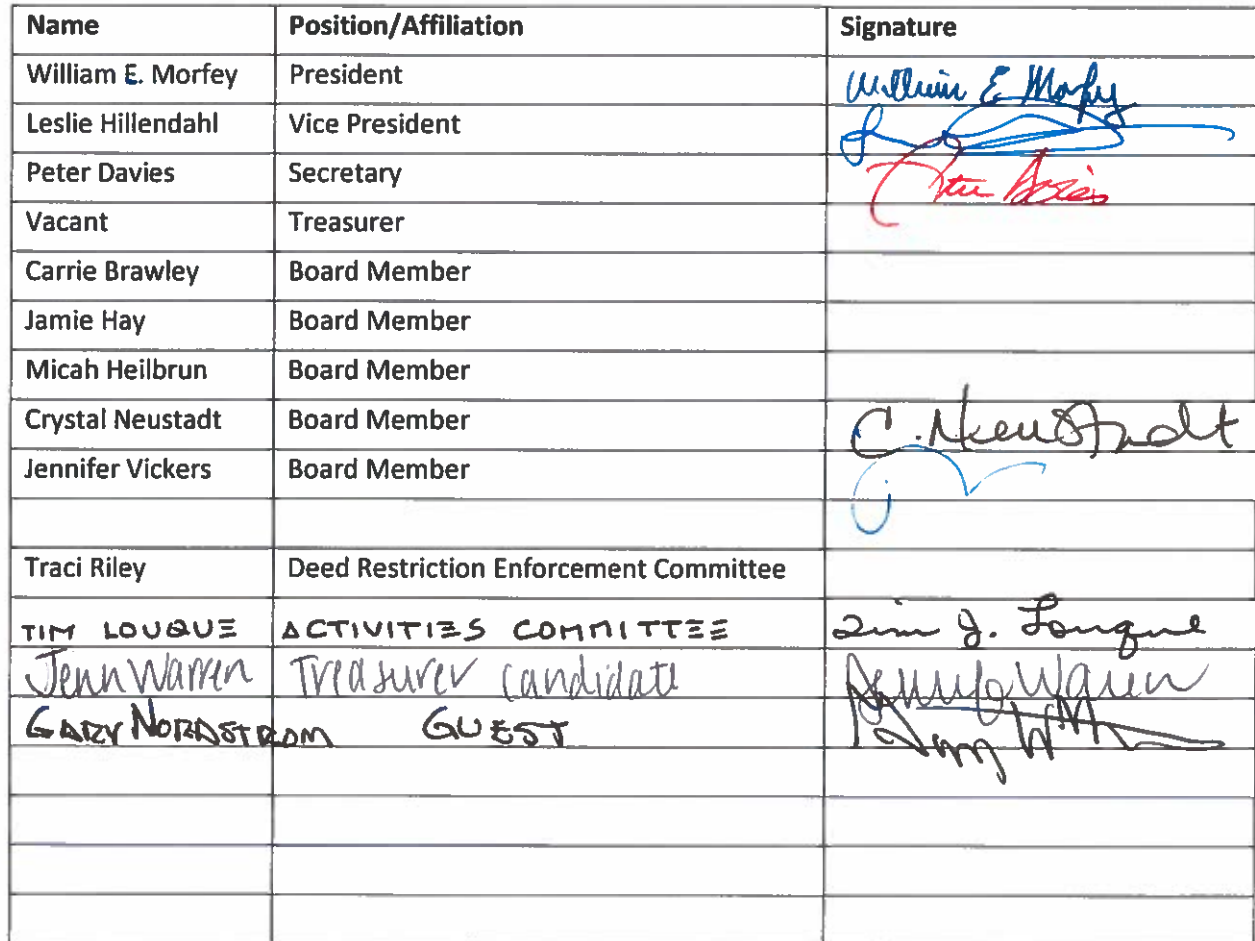 Name Position/Affiliation Signature
William E. Morfey President William E Morfey
Leslie Hillendahl Vice President
Peter Davies Secretary Peter Davies
Vacant Treasurer
Carrie Brawley Board Member
Jamie Hay Board Member
Micah Heilbrun Board Member
Crystal Neustadt Board Member C. Neustadt
Jennifer Vickers Board Member
Traci Riley Deed Restriction Enforcement Committee
TIM LOUQUE ACTIVITIES COMMITTEE Tim J. Louque
Jenn Warren Treasurer Candidate Jennifer Warren
GARY NORDSTROM GUEST